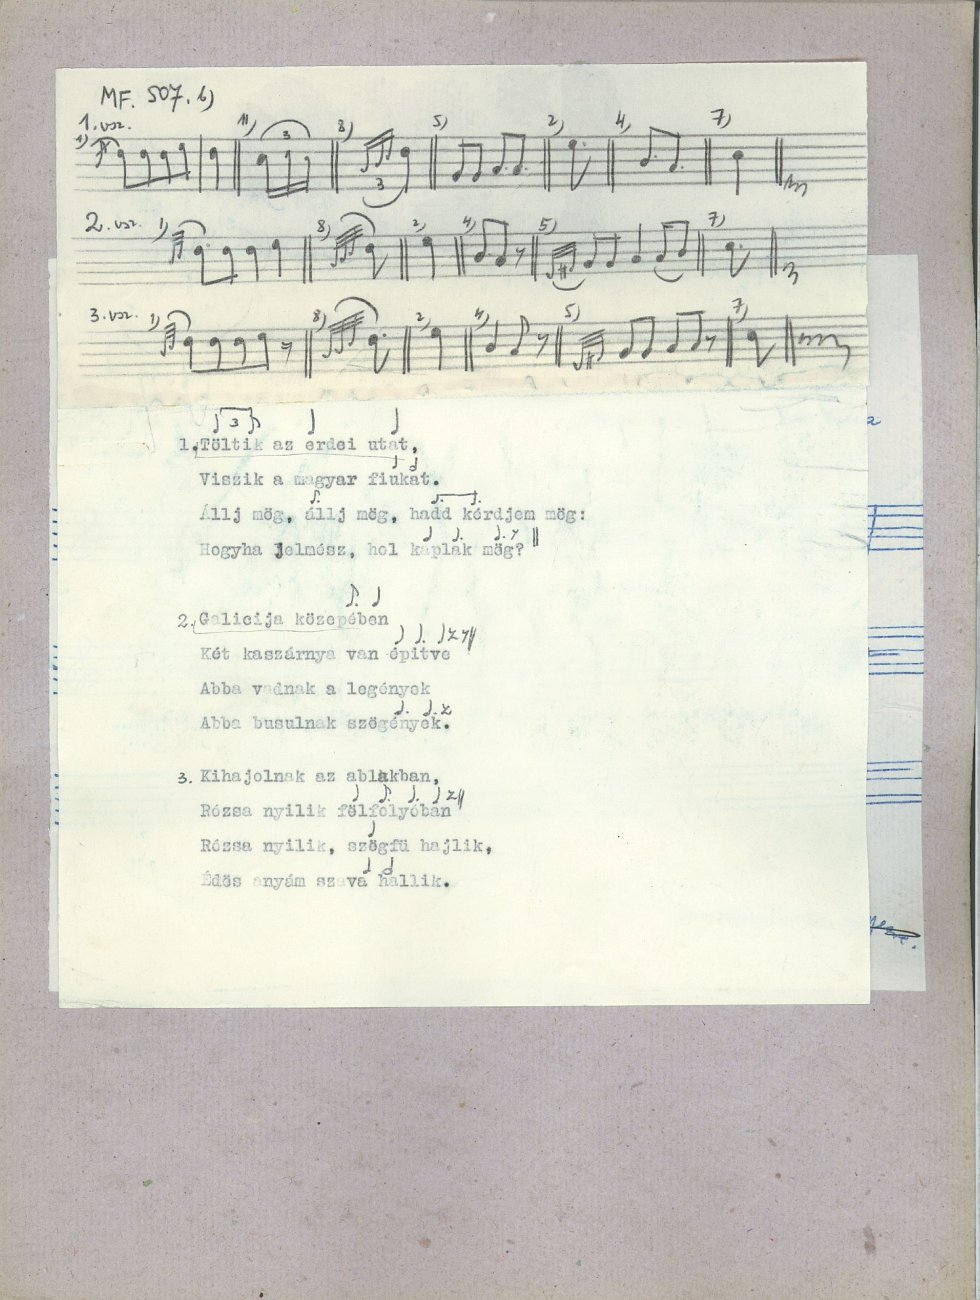 MF. 507. b)
1. vsz.
1) 11) 3 8) 3 5) 2) 4) 7)
2. vsz. 1) 8) 2) 4) 5) 7)
3. vsz. 1) 8) 2) 4) 5) 7)
3
1. Töltik az erdei utat,
Viszik a magyar fiukat.
Állj mög, állj mög, hadd kérdjem mög:
Hogyha jelmész, hol kaplak mög?
2. Galicija közepében
Két kaszárnya van épitve
Abba vadnak a legények
Abba busulnak szögények.
3. Kihajolnak az ablakban,
Rózsa nyilik fölfolyóban
Rózsa nyilik, szögfü hajlik,
Édös anyám szava hallik.